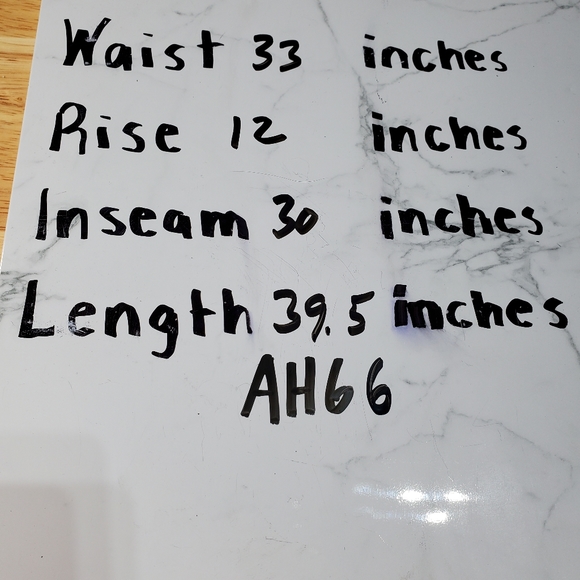 Waist 33 inches
Rise 12 inches
Inseam 30 inches
Length 39.5 inches
AH66